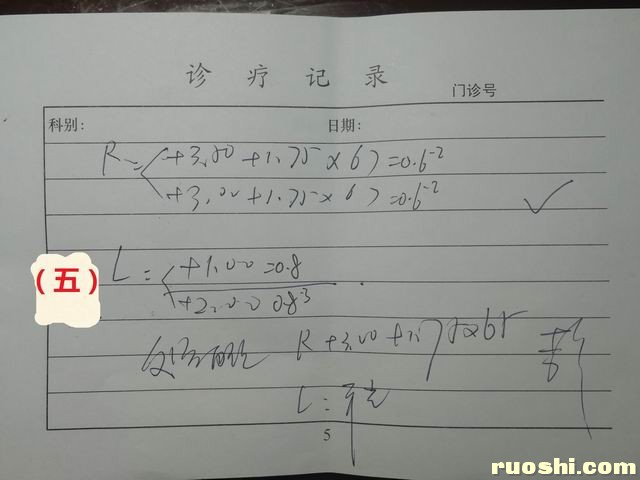 诊 疗 记 录
门诊号
科别: 日期:
R = +3.50 +1.75 x 67 = 0.6-2
+3.00 +1.75 x 67 = 0.6-2
(五)
L = +1.00 = 0.8
+2.00 0.8-3
R +3.00 +1.75 x 65
L: 平光
5
ruoshi.com